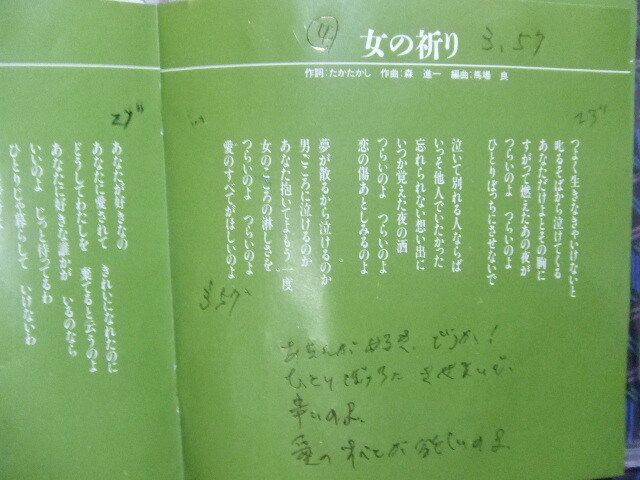 ④ 女の祈り 3.57
作詞:たかたかし 作曲:森 進一 編曲:馬場 良
23"
つよく生きなきゃいけないと
叱るそばから泣けてくる
あなただけよとその胸に
すがって燃えたあの夜が
つらいのよ つらいのよ
ひとりぼっちにさせないで
泣いて別れる人ならば
いっそ他人でいたかった
忘れられない想い出に
いつか覚えた夜の酒
つらいのよ つらいのよ
恋の傷あとしみるのよ
夢が散るから泣けるのか
男ごころに泣けるのか
あなた抱いてよもう一度
女のこころの淋しさを
つらいのよ つらいのよ
愛のすべてがほしいのよ
3.57
どうか!
ひとりぼっちに させないで、
辛いのよ、
愛の すべてが 欲しいのよ
27"
あなたが好きなの きれいになれたのに
あなたに愛されて
どうしてわたしを 棄てると云うのよ
あなたに好きな誰かが いるのなら
いいのよ じっと待ってるわ
ひとりじゃ暮らして いけないわ